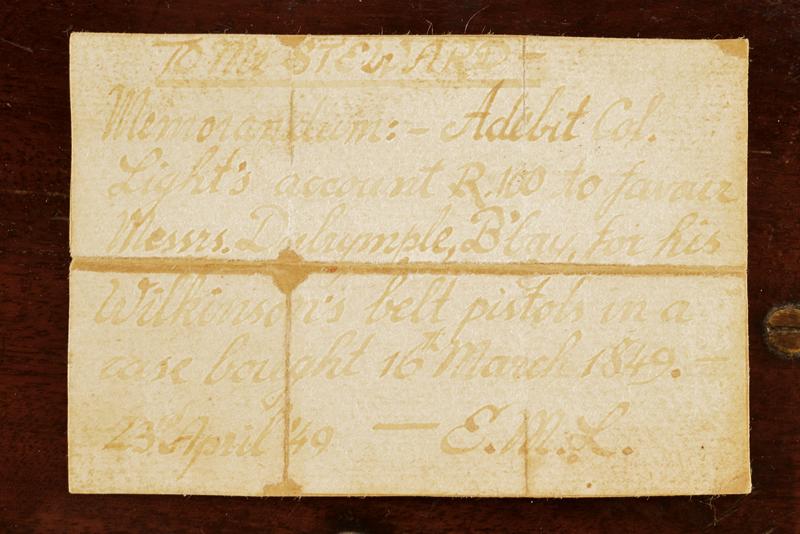 To Mr STEWARD –
Memorandum:– Adebit Col.
Light's account R.100 to favour
Messrs. Dalrymple, B'bay, for his
Wilkinson's belt pistols in a
case bought 16th March 1849.–
23d April '49 — E.M.L.